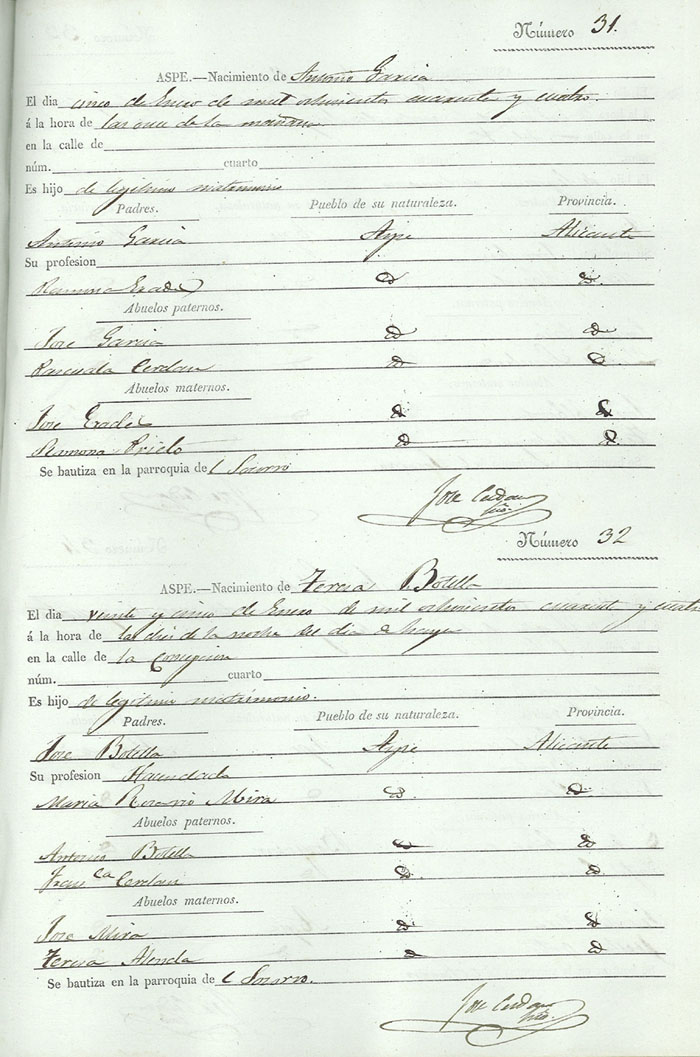 Número 31.
ASPE.—Nacimiento de Antonio Garcia
El dia cinco de Enero de mil ochocientos cuarenta y cuatro.
á la hora de las once de la mañana
en la calle de
núm. cuarto
Es hijo de legitimo matrimonio
Padres. Pueblo de su naturaleza. Provincia.
Antonio Garcia Aspe Alicante
Su profesion
Ramona Erades
Abuelos paternos.
Jose Garcia
Pascuala Cerdan
Abuelos maternos.
Jose Erades
Ramona
Se bautiza en la parroquia del Socorro
Jose Cerdan
Número 32
ASPE.—Nacimiento de Teresa Botella
El dia veinte y cinco de Enero de mil ochocientos cuarent y cuatro
á la hora de las dies de la noche del dia de
en la calle de la
núm. cuarto
Es hijo de legitimo matrimonio.
Padres. Pueblo de su naturaleza. Provincia.
Jose Botella Aspe Alicante
Su profesion Hacendado
Maria Rosario Mira
Abuelos paternos.
Antonio Botella
Franca Cerdan
Abuelos maternos.
Jose Mira
Teresa Alenda
Se bautiza en la parroquia del Socorro.
Jose Cerdan